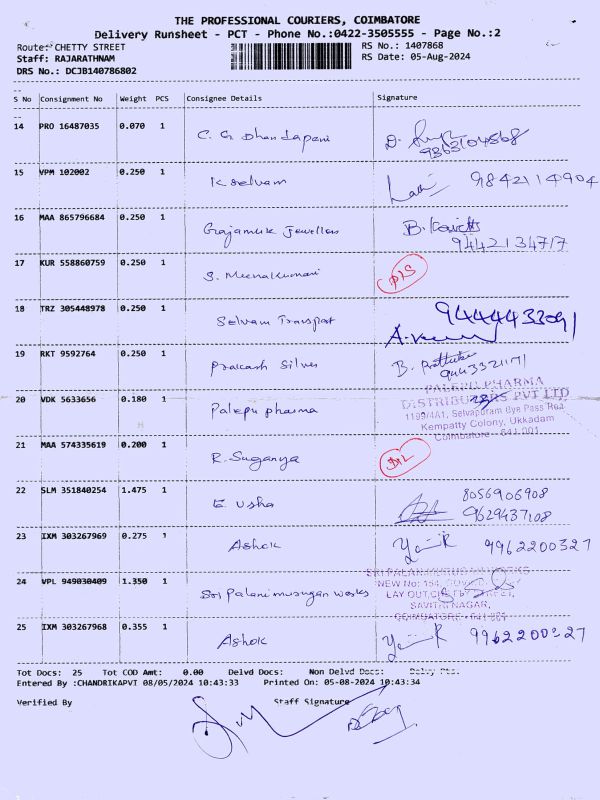 THE PROFESSIONAL COURIERS, COIMBATORE
Delivery Runsheet - PCT - Phone No.:0422-3505555 - Page No.:2
Route: CHETTY STREET RS No.: 1407868
Staff: RAJARATHNAM RS Date: 05-Aug-2024
DRS No.: DCJB140786802
S No Consignment No Weight PCS Consignee Details Signature
14 PRO 16487035 0.070 1 C. G. Dhandapani
9363104568
15 VPM 102002 0.250 1 K Selvam 9842114904
16 MAA 865796684 0.250 1 Gajamuk Jewellers B.
9442134717
17 KUR 558860759 0.250 1 S. Meenakumari
18 TRZ 305448978 0.250 1 Selvam Transport 9444433091
19 RKT 9592764 0.250 1 Prakash Silver B.
9443321171
20 VDK 5633656 0.180 1 Palepu pharma
PALEPU PHARMA
DISTRIBUTORS PVT LTD
1199/4A1, Selvapuram Bye Pass Road
Kempatty Colony, Ukkadam
Coimbatore - 641 001
21 MAA 574335619 0.200 1 R. Suganya
22 SLM 351840254 1.475 1 E Usha 8056906908
9629437108
23 IXM 303267969 0.275 1 Ashok 9962200327
24 VPL 949030409 1.350 1 Sri Palanimurugan works
NEW No: 154,
LAY OUT,
SAVITRI NAGAR,
COIMBATORE - 641 001
25 IXM 303267968 0.355 1 Ashok 9962200327
Tot Docs: 25 Tot COD Amt: 0.00 Delvd Docs: Non Delvd Docs:
Entered By :CHANDRIKAPVT 08/05/2024 10:43:33 Printed On: 05-08-2024 10:43:34
Verified By Staff Signature